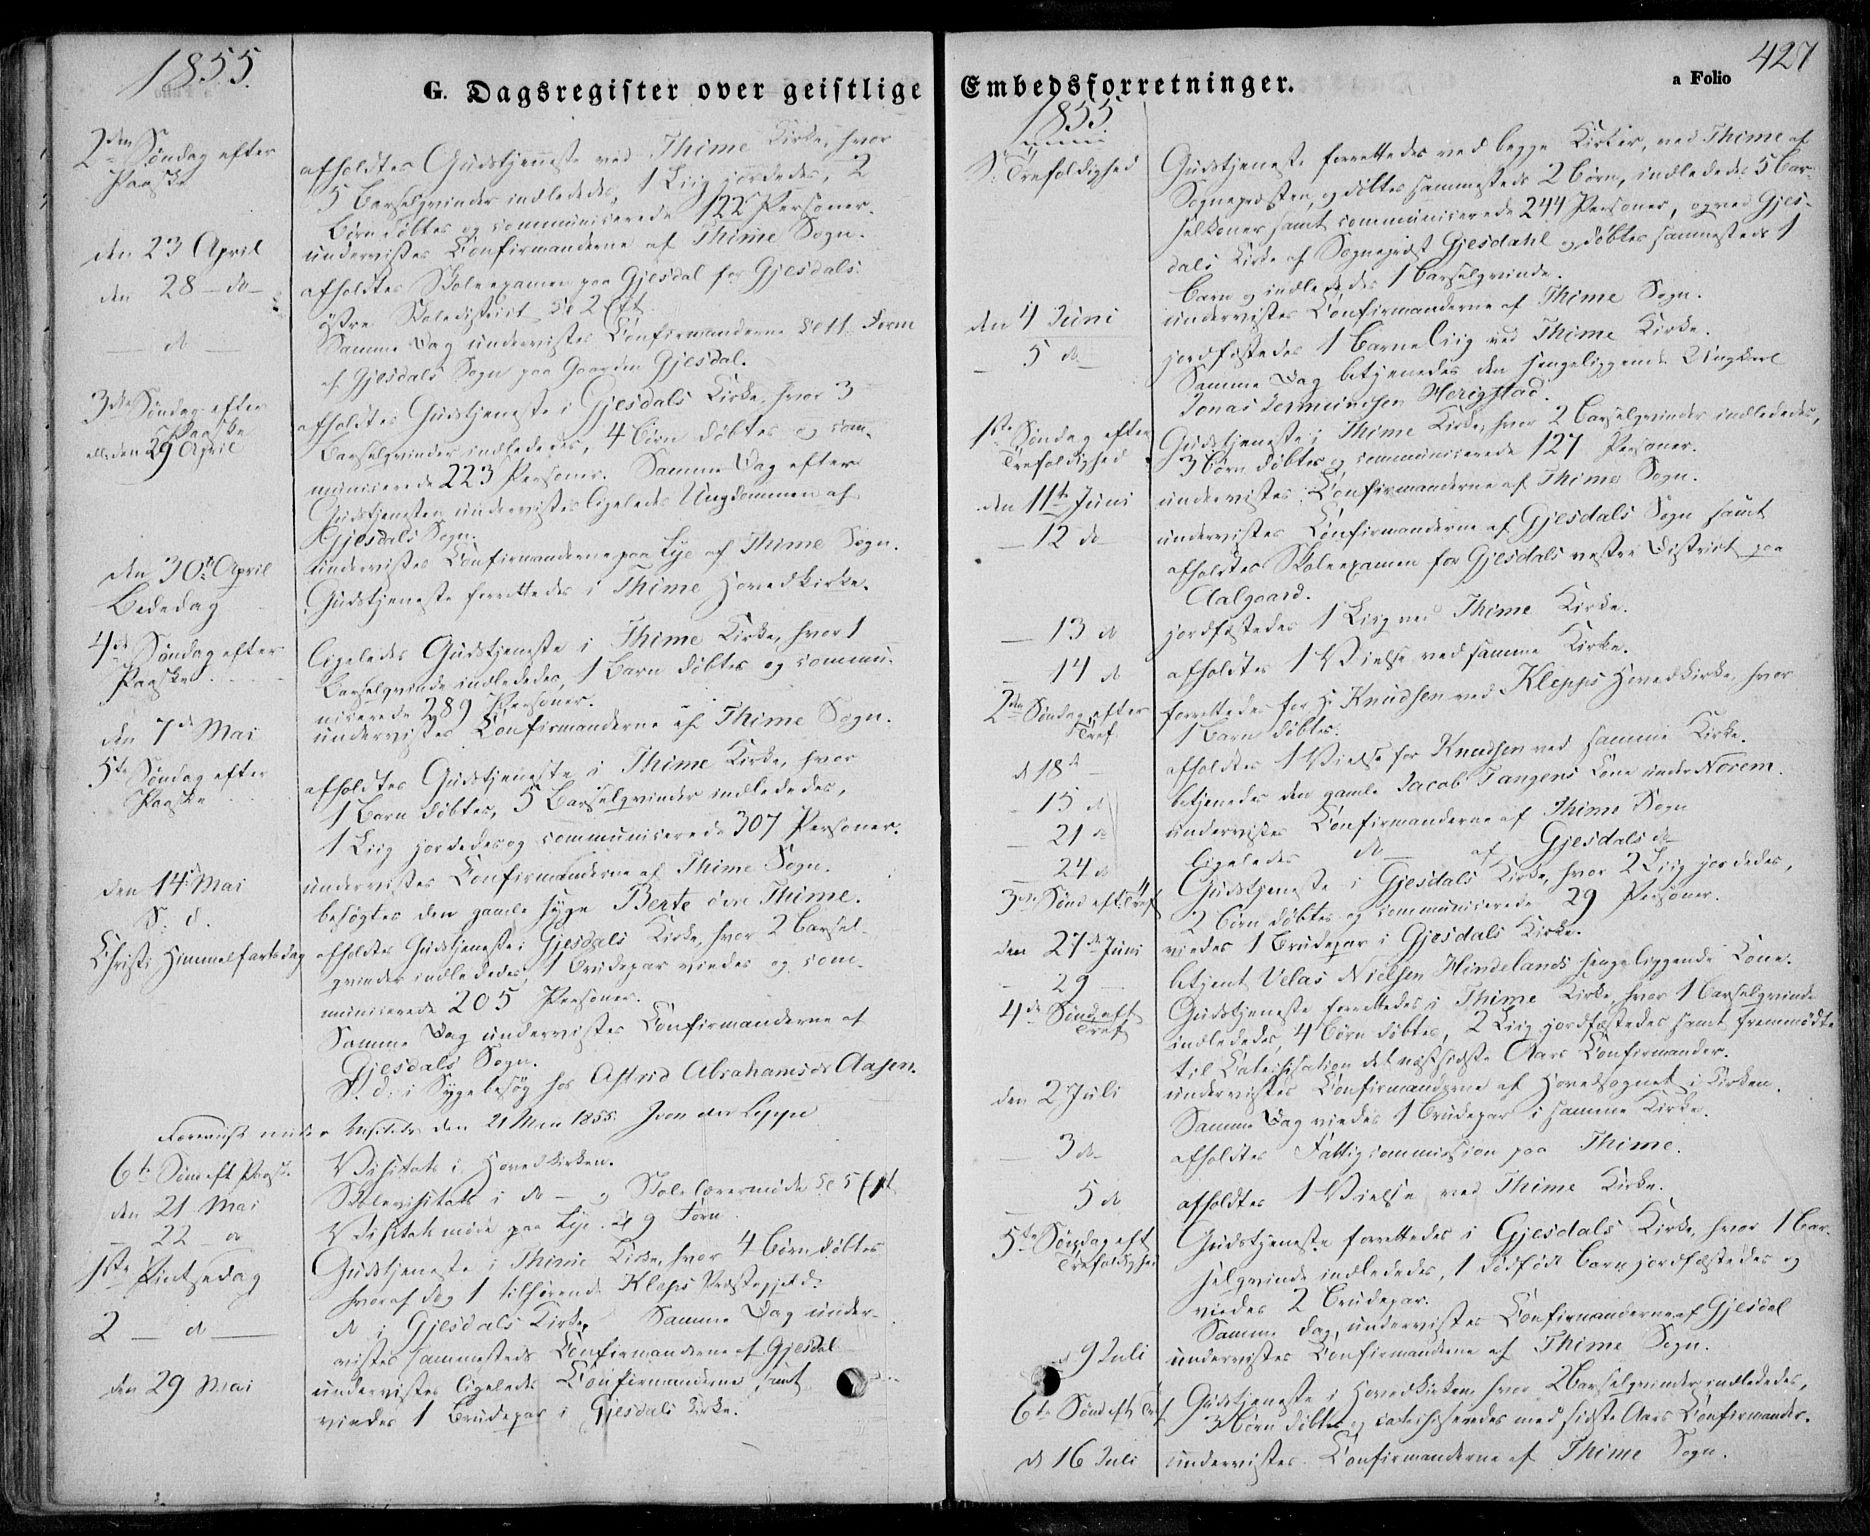 1855.
G. Dagsregister over geistlige
2den Søndag efter
Paaske
afholdtes Gudstjeneste ved Thime Kirke, hvor
5 Barselqvinder indlededes, 1 Liig jordedes, 2
Børn døbtes og communicerede 122 Personer.
den 23 April
undervistes Confirmanderne af Thime Sogn.
den 28 - do -
afholdtes Skoleexamen paa Gjesdal for Gjesdals
østre Skoledistrict Kl 2 Eft
- do -
Samme Dag undervistes Confirmanderne Kl 11 Form
af Gjesdals Sogn paa Gaarden Gjesdal.
3die Søndag efter
Paaske
eller den 29 April
afholdtes Gudstjeneste i Gjesdals Kirke, hvor 3
Barselqvinder indlededes, 4 Børn døbtes og com-
municerede 223 Personer. Samme Dag efter
Gudstjenesten undervistes ligeledes Ungdommen af
Gjesdals Sogn.
den 30te April
undervistes Confirmanderne paa Lye af Thime Sogn.
Bededag
Gudstjeneste forrettedes i Thime Hovedkirke.
4de Søndag efter
Paaske
ligeledes Gudstjeneste i Thime Kirke, hvor 1
Barselqvinde indlededes, 1 Barn døbtes og commu-
nicerede 289 Personer.
den 7de Mai
undervistes Confirmanderne af Thime Sogn.
5te Søndag efter
Paaske
afholdtes Gudstjeneste i Thime Kirke, hvor
1 Barn døbtes, 5 Barselqvinder indlededes,
1 Liig jordedes og communicerede 307 Personer.
den 14de Mai
undervistes Confirmanderne af Thime Sogn.
S. d.
besøgtes den gamle syge Berte øvre Thime.
Christi Himmelfartsdag
afholdtes Gudstjeneste i Gjesdals Kirke, hvor 2 Barsel-
qvinder indlededes, 1 Brudepar viedes og com-
municerede 205 Personer.
Samme Dag undervistes Confirmanderne af
Gjesdals Sogn.
S. d. i Sygebesøg hos Astrid Abrahamsdr Aasen.
Foreviist under Visitats den 21 Mai 1855. Jvon der Lippe
6te Søn eft Paask.
Visitats i Hovedkirken.
den 21 Mai
Skolevisitats i do - og Skolelærermøde Kl 5 Eft
- 22 - do
Visitatsmøde paa Lye Kl 9 Form
1ste Pintsedag
Gudstjeneste i Thime Kirke, hvor 4 Børn døbtes
hvoraf dog 1 tilhørende Klepps Præstegjeld.
2 - do -
do i Gjesdals Kirke. Samme Dag under-
vistes sammesteds Confirmanderne af Gjesdal
den 29 Mai
undervistes ligeledes Confirmanderne, samt
viedes 1 Brudepar i Gjesdals Kirke.
Embedsforretninger.
a Folio
427
1855
S. Trefoldighed
Gudstjeneste forrettedes ved begge Kirker, ved Thime af
Sognepresten, og døbtes sammesteds 2 Børn, indlededes 5 Bar-
selkoner samt communicerede 244 Personer, og ved Gjes-
dals Kirke af Sogneprest Gjesdahl og døbtes sammesteds 1
Barn og indlededes 1 Barselqvinde.
den 4 Juni
undervistes Confirmanderne af Thime Sogn.
- 5 do -
jordfæstedes 1 Barneliig ved Thime Kirke.
Samme Dag betjenedes den sengeliggende Ungkarl
Jonas Herigstad.
1ste Søndag efter
Trefoldighed
Gudstjeneste i Thime Kirke, hvor 2 Barselqvinder indlededes,
3 Børn døbtes og communicerede 127 Personer.
den 11te Juni
undervistes Confirmanderne af Thime Sogn.
- 12 do -
undervistes Confirmanderne af Gjesdals Sogn samt
afholdtes Skoleexamen for Gjesdals vestre District paa
Aalgaard.
- 13 do
jordfæstedes 1 Liig ved Thime Kirke.
- 14 do
afholdtes 1 Vielse ved samme Kirke.
2den Søndag efter
Tref
forrettedes for Hr Knudsen ved Klepps Hovedkirke, hvor
1 Barn døbtes.
d 18de -
afholdtes 1 Vielse for Knudsen ved samme Kirke.
- 15 do
betjenedes den gamle Jacob Tangens Kone under Norem.
- 21 do
undervistes Confirmanderne af Thime Sogn
- 24 do
ligeledes do af Gjesdals do
3die Sønd eft. Tref
Gudstjeneste i Gjesdals Kirke, hvor 2 Liig jordedes,
2 Børn døbtes og communicerede 29 Personer.
den 27de Juni
viedes 1 Brudepar i Gjesdals Kirke.
- 29 -
betjent Velas Nielsen Hindelands sengeliggende Kone.
4de Sønd. eft
Tref
Gudstjeneste forrettedes i Thime Kirke, hvor 1 Barselqvinde
indlededes, 4 Børn døbtes, 2 Liig jordfæstedes samt fremmødte
til Catechisation det næstsidste Aars Confirmander.
den 2 Juli
undervistes Confirmanderne af Hovedsognet i Kirken.
Samme Dag viedes 1 Brudepar i samme Kirke.
- 3 do -
afholdtes Fattigcommission paa Thime.
- 5 do
afholdtes 1 Vielse ved Thime Kirke.
5te Søndag eft
Trefoldighed
Gudstjeneste forrettedes i Gjesdals Kirke, hvor 1 Bar-
selqvinde indlededes, 1 dødfødt Barn jordfæstedes og
viedes 2 Brudepar.
Samme Dag undervistes Confirmanderne af Gjesdal
d 9 Juli
undervistes Confirmanderne af Thime Sogn.
6te Sønd eft Tref
Gudstjeneste i Hovedkirken, hvor 2 Barselqvinder indlededes,
3 Børn døbtes og catechiseredes med sidste Aars Confirmander.
d 16 Juli
undervistes Confirmanderne af Thime Sogn.